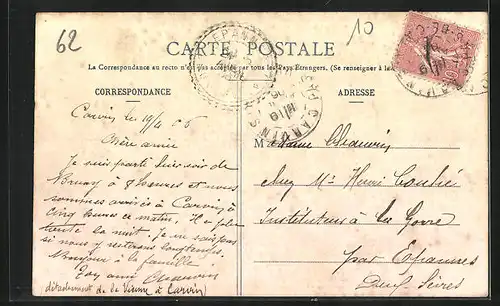 62
10
CARTE POSTALE
La Correspondance au recto n'est pas acceptée par tous les Pays Etrangers. (Se renseigner à la
CORRESPONDANCE
ADRESSE
EPANNES
CARVIN
Carvin le 19/4 06
Chère amie
Je suis parti hier soir de
Bruay à 8 heures et nous
sommes arrivés à Carvin à
cinq heures ce matin. Il a plu
toute la nuit. Je ne sais pas
si nous y resterons longtemps.
Bonjour à la famille
Ton ami
détachement de la Vienne à Carvin
Madame
chez Mr Henri
Instituteur à La Gorre
par Epannes
Deux Sèvres